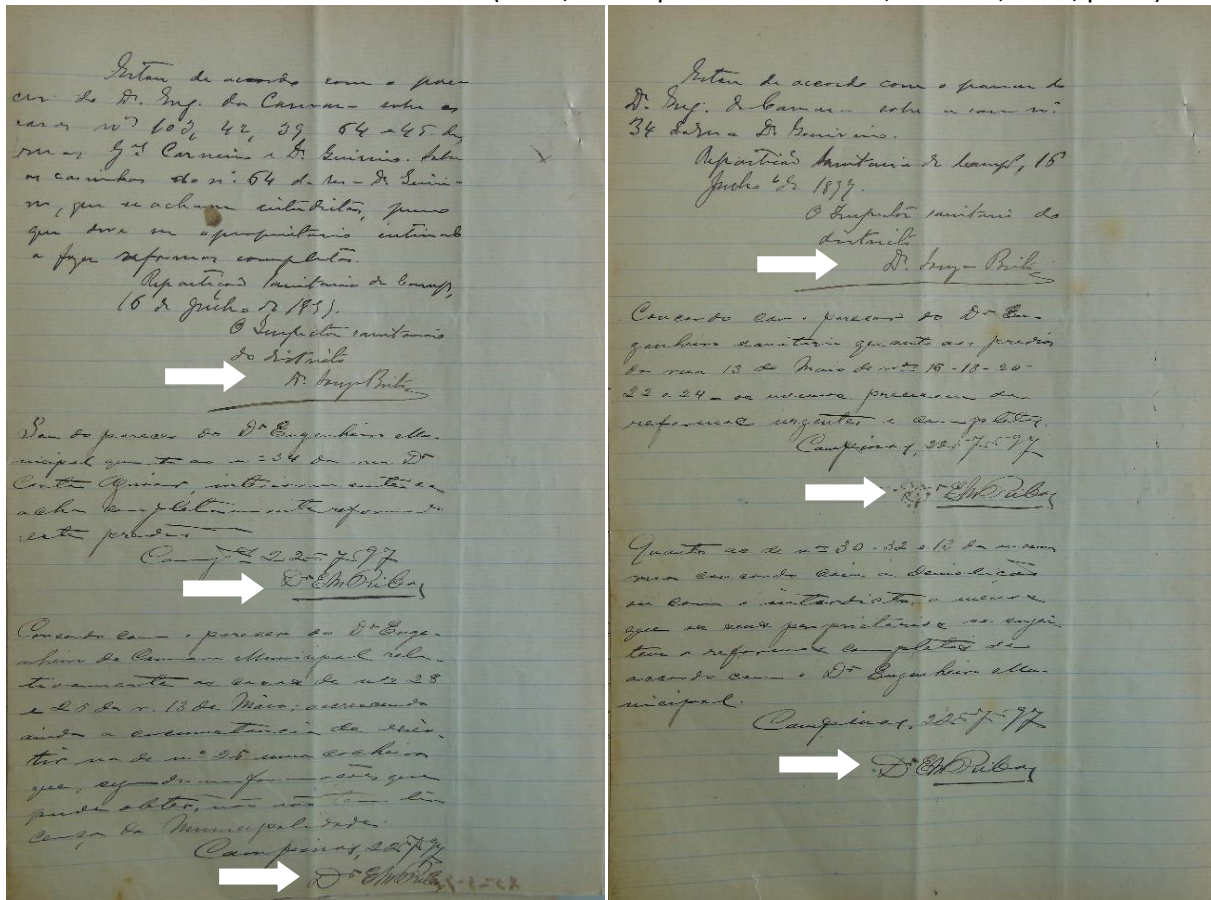 Estou de accordo com o pare-
cer do Dr. Eng. da Camara sobre as
casas nos 103, 42, 39, 64 e 45 das
ruas Gal Carneiro e Dr. Quirino. Sobre
as casinhas do nº 64 da rua Dr. Quiri-
no, que se acham interdictas, penso
que deve ser o proprietario intimado
a fazer reformas completas.
Repartição Sanitaria de Camps,
16 de Julho de 1897.
O Inspector sanitario
do districto
Dr. Souza Brito
Sou do parecer do Dr Engenheiro Mu-
nicipal quanto ao nº 34 da rua Dr
este predio
22-7-97
Dr EMRibas
Concordo com o parecer do Dr Enge-
nheiro da Camara Municipal rela-
tivamente as casas de nos 23
e 25 da r. 13 de Maio; accrescendo
ainda a circumstancia de exis-
tir na de nº 25 uma cocheira
que, segundo informações que
pude obter, não tem li-
cença da Municipalidade.
Campinas, 22-7-97
Dr EMRibas
Estou de accordo com o parecer do
Dr. Eng. da Camara sobre a casa nº
34 da rua Dr. Quirino.
Repartição Sanitaria de Camps, 16
Julho de 1897.
O Inspector sanitario do
districto
Dr. Souza Brito
Concordo com o parecer do Dr En-
genheiro sanitario quanto aos predios
da rua 13 de Maio de nos 16-18-20-
22 e 24 - os mesmos precisam de
reformas urgentes e completas.
Campinas, 22-7-97
Dr EMRibas
Quanto ao de nos 30-32 e 13 da mesma
rua concordo com a demolição
ou com o interdicto, a menos
que os seus proprietarios se sujei-
tem a reformas completas de
accordo com o Dr Engenheiro Mu-
nicipal.
Campinas, 22-7-97
Dr EMRibas